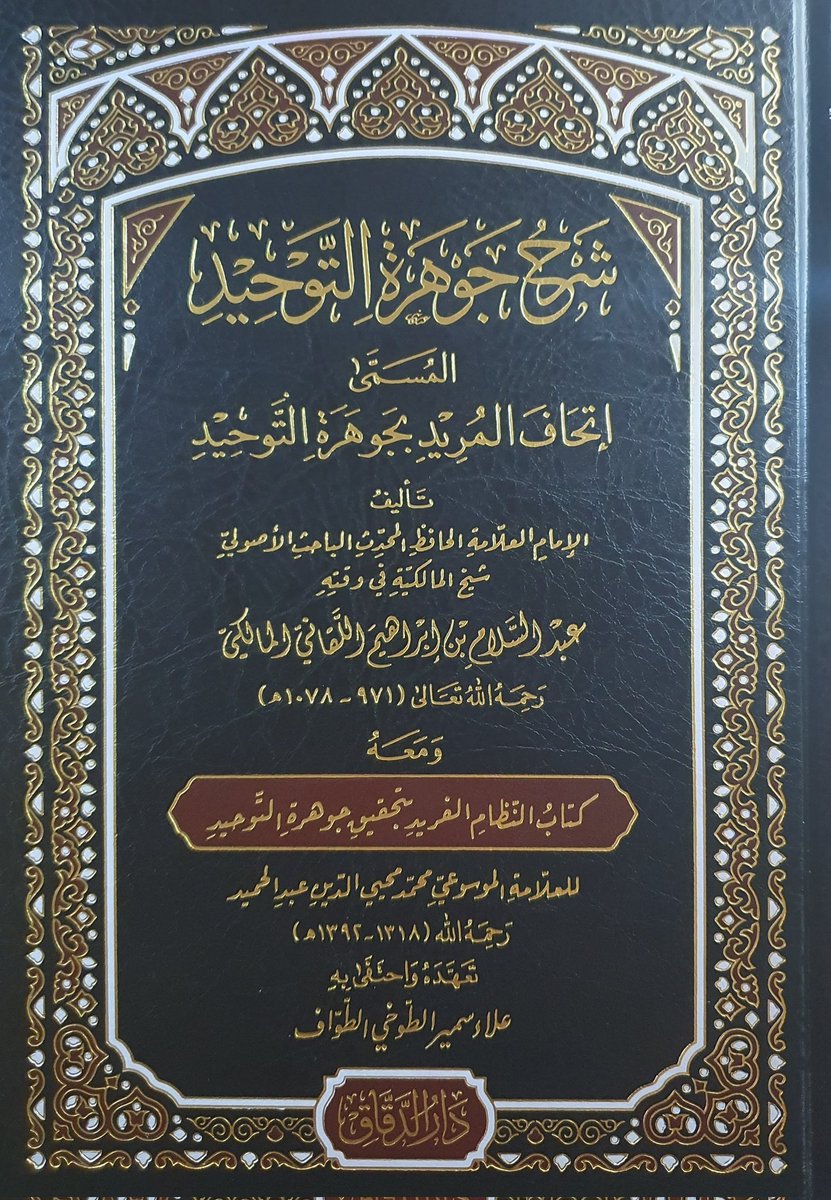 شَرْحُ جَوْهَرَةِ التَّوْحِيْدِ
المُسَمَّى
إِتْحَافَ المُرِيْدِ بِجَوْهَرَةِ التَّوْحِيْدِ
تَأْلِيْفُ
الإمامِ العلّامةِ الحافظِ المحدّثِ الباحثِ الأصوليِّ
شيخِ المالكيّةِ في وقتِهِ
عَبْدِ السَّلَامِ بْنِ إِبْرَاهِيمَ اللَّقَانِيِّ المَالِكِيِّ
رَحِمَهُ اللهُ تَعَالَى (٩٧١ - ١٠٧٨هـ)
وَمَعَهُ
كتابُ النّظامِ الفريدِ بتحقيقِ جوهرةِ التّوحيدِ
للعلّامةِ الموسوعيِّ محمّد محيي الدّين عبد الحميد
رَحِمَهُ الله (١٣١٨ - ١٣٩٢هـ)
تَعَهَّدَهُ وَاحتَفَى بِهِ
علاء سمير الطّوخي الطّوّاف
دَارُ الدَّقَّاق